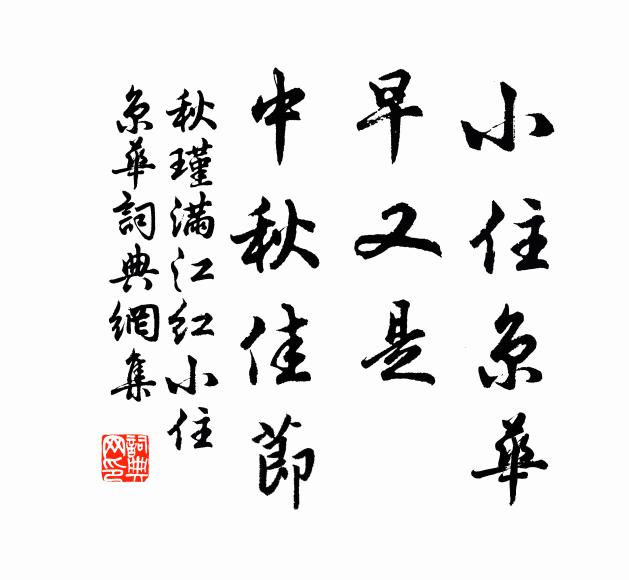 小住京華
早又是
中秋佳節
秋瑾滿江紅小住
京華詞典網集
詞典
网印